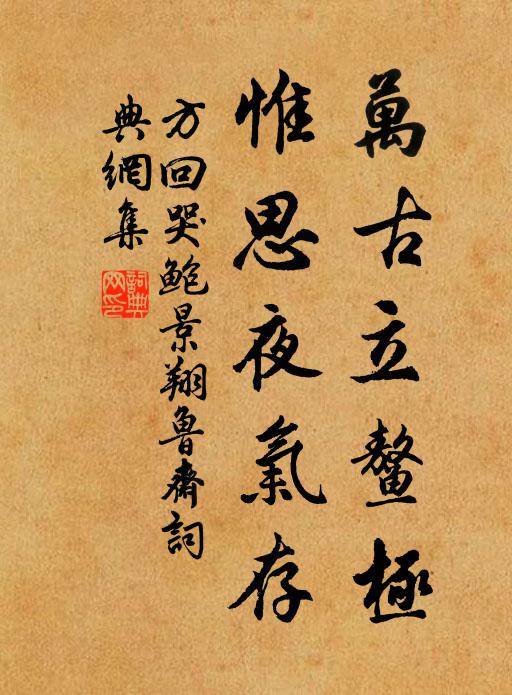 萬古立鰲極
惟思夜氣存
方回哭鮑景翔魯齋詞
典網集
詞典網印